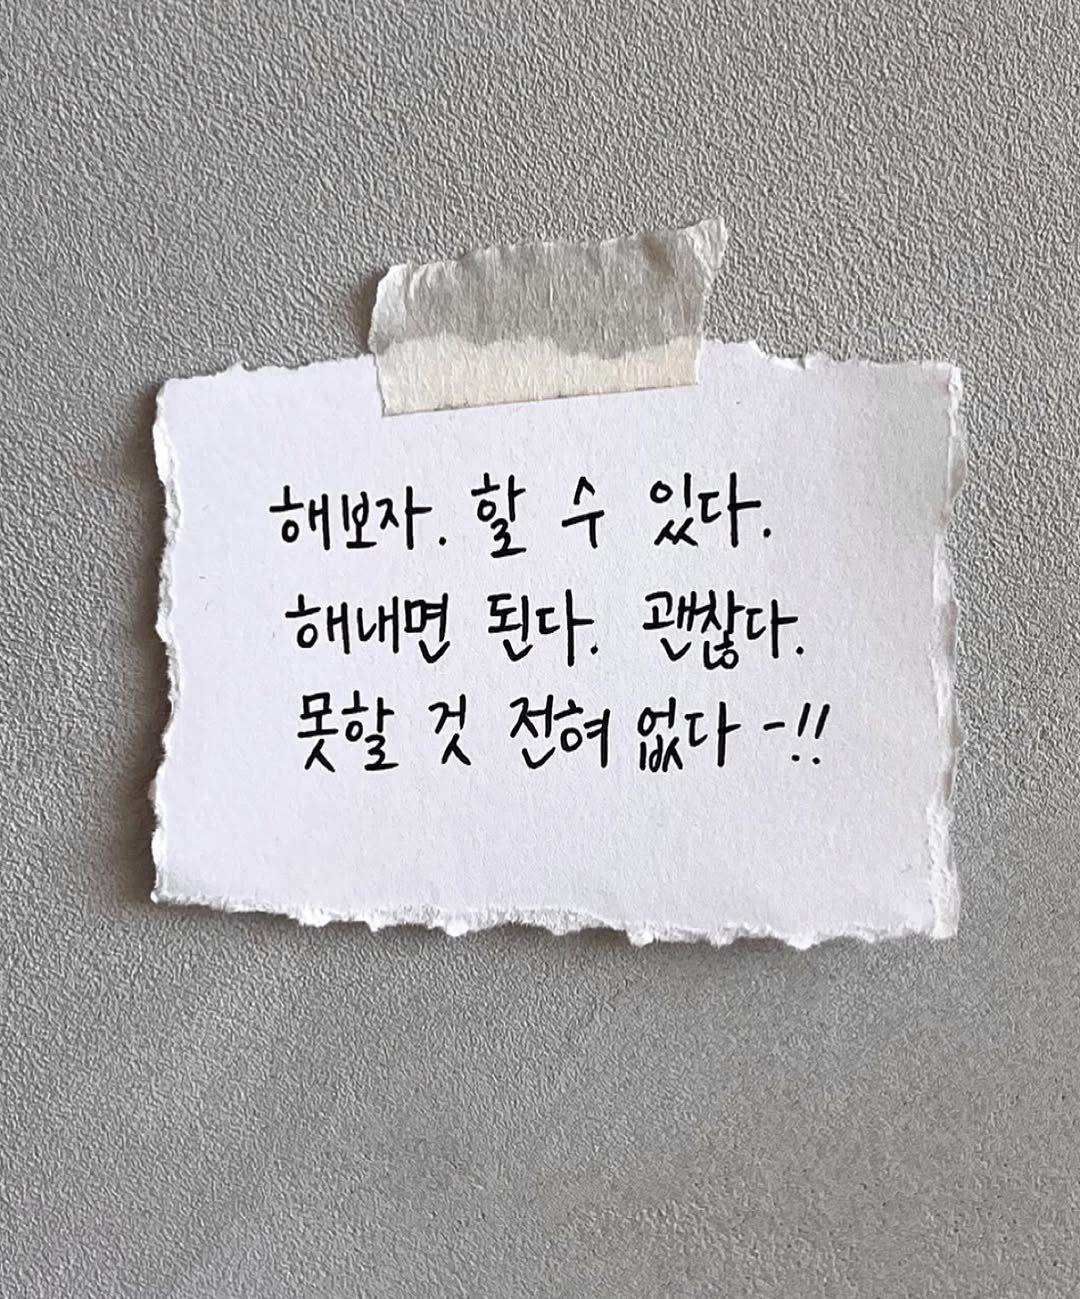 해보자. 할 수 있다.
해내면 된다. 괜찮다.
못할 것 전혀 없다-!!